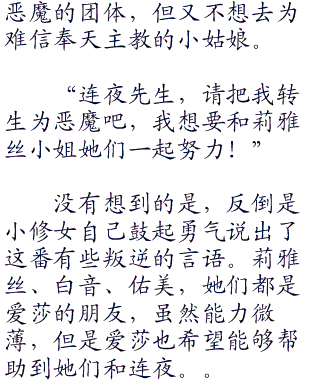 恶魔的团体，但又不想去为
难信奉天主教的小姑娘。
“连夜先生，请把我转
生为恶魔吧，我想要和莉雅
丝小姐她们一起努力！”
没有想到的是，反倒是
小修女自己鼓起勇气说出了
这番有些叛逆的言语。莉雅
丝、白音、佑美，她们都是
爱莎的朋友，虽然能力微
薄，但是爱莎也希望能够帮
助到她们和连夜。。